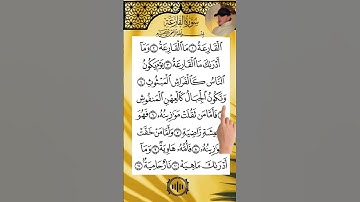 سُورَةُ القَارِعَة
ٱلْقَارِعَةُ ۝١ مَا ٱلْقَارِعَةُ ۝٢ وَمَآ
أَدْرَىٰكَ مَا ٱلْقَارِعَةُ ۝٣ يَوْمَ يَكُونُ
ٱلنَّاسُ كَٱلْفَرَاشِ ٱلْمَبْثُوثِ ۝٤
وَتَكُونُ ٱلْجِبَالُ كَٱلْعِهْنِ ٱلْمَنفُوشِ
۝٥ فَأَمَّا مَن ثَقُلَتْ مَوَٰزِينُهُۥ ۝٦ فَهُوَ
عِيشَةٍ رَّاضِيَةٍ ۝٧ وَأَمَّا مَنْ خَفَّتْ
مَوَٰزِينُهُۥ ۝٨ فَأُمُّهُۥ هَاوِيَةٌ ۝٩ وَمَآ
أَدْرَىٰكَ مَا هِيَهْ ۝١٠ نَارٌ حَامِيَةٌۢ ۝١١